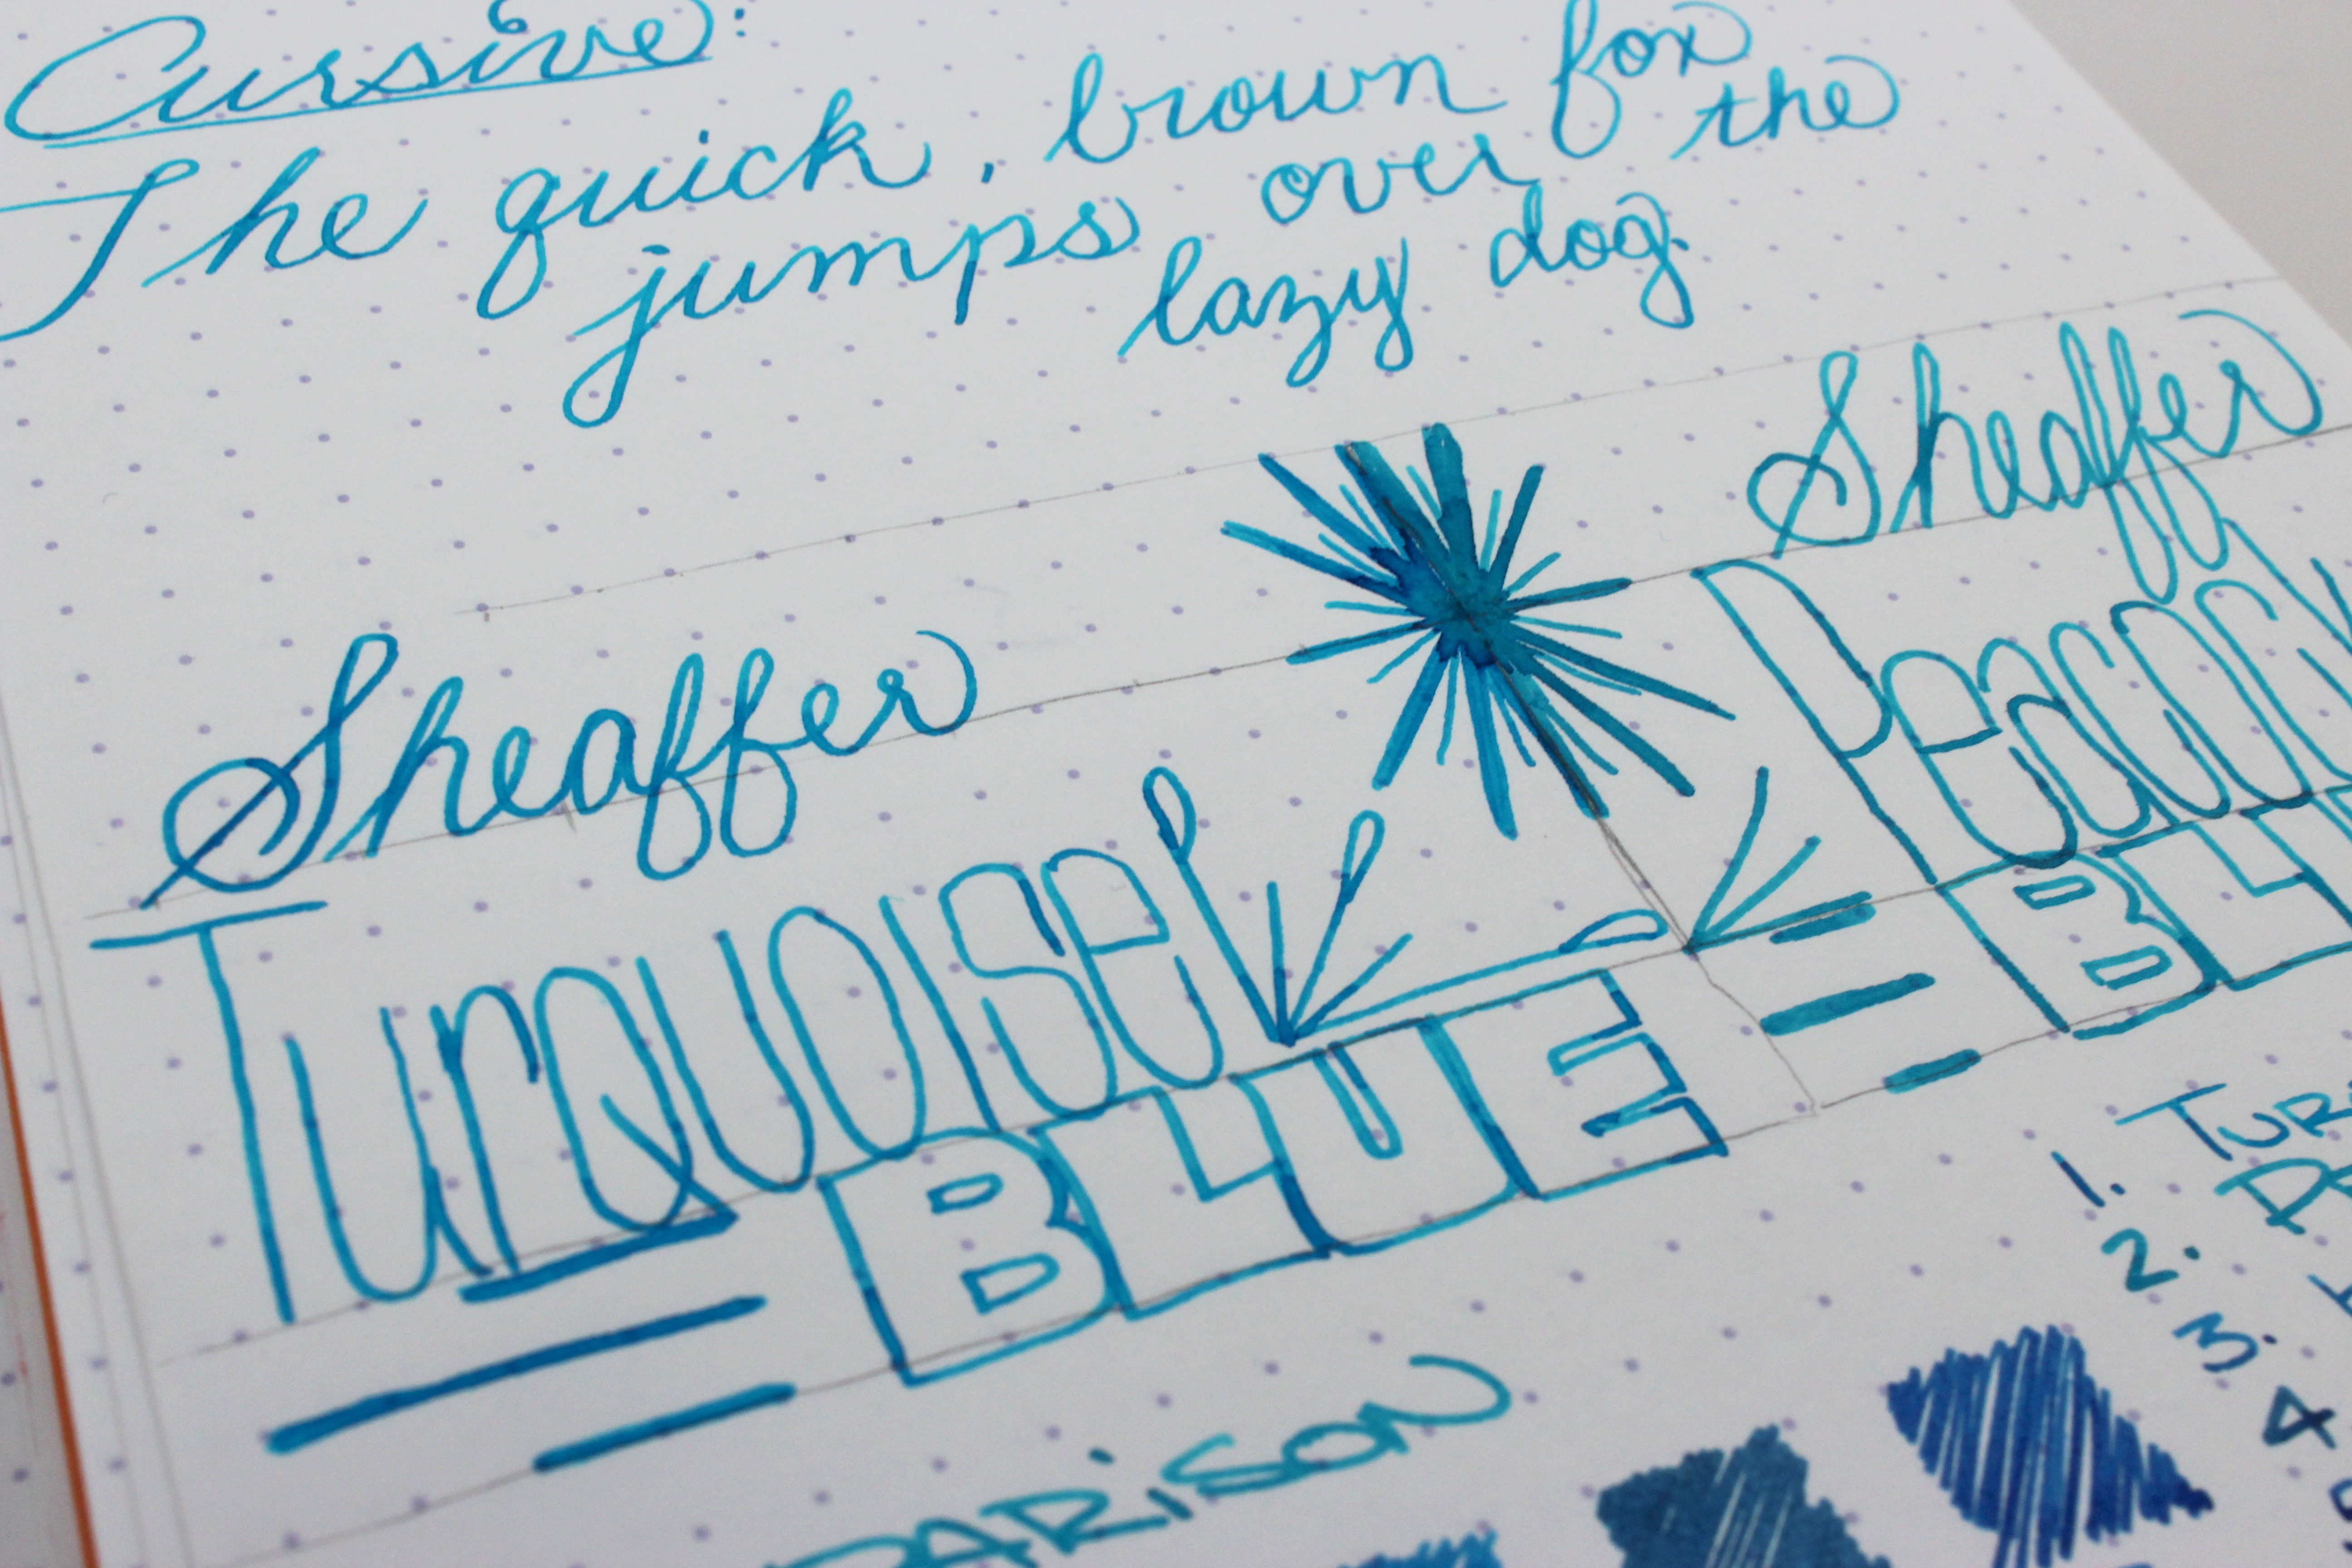 Cursive:
The quick, brown fox
jumps over the
lazy dog.
Sheaffer
Turquoise
BLUE
Sheaffer
Peacock
1.
2.
3.
4